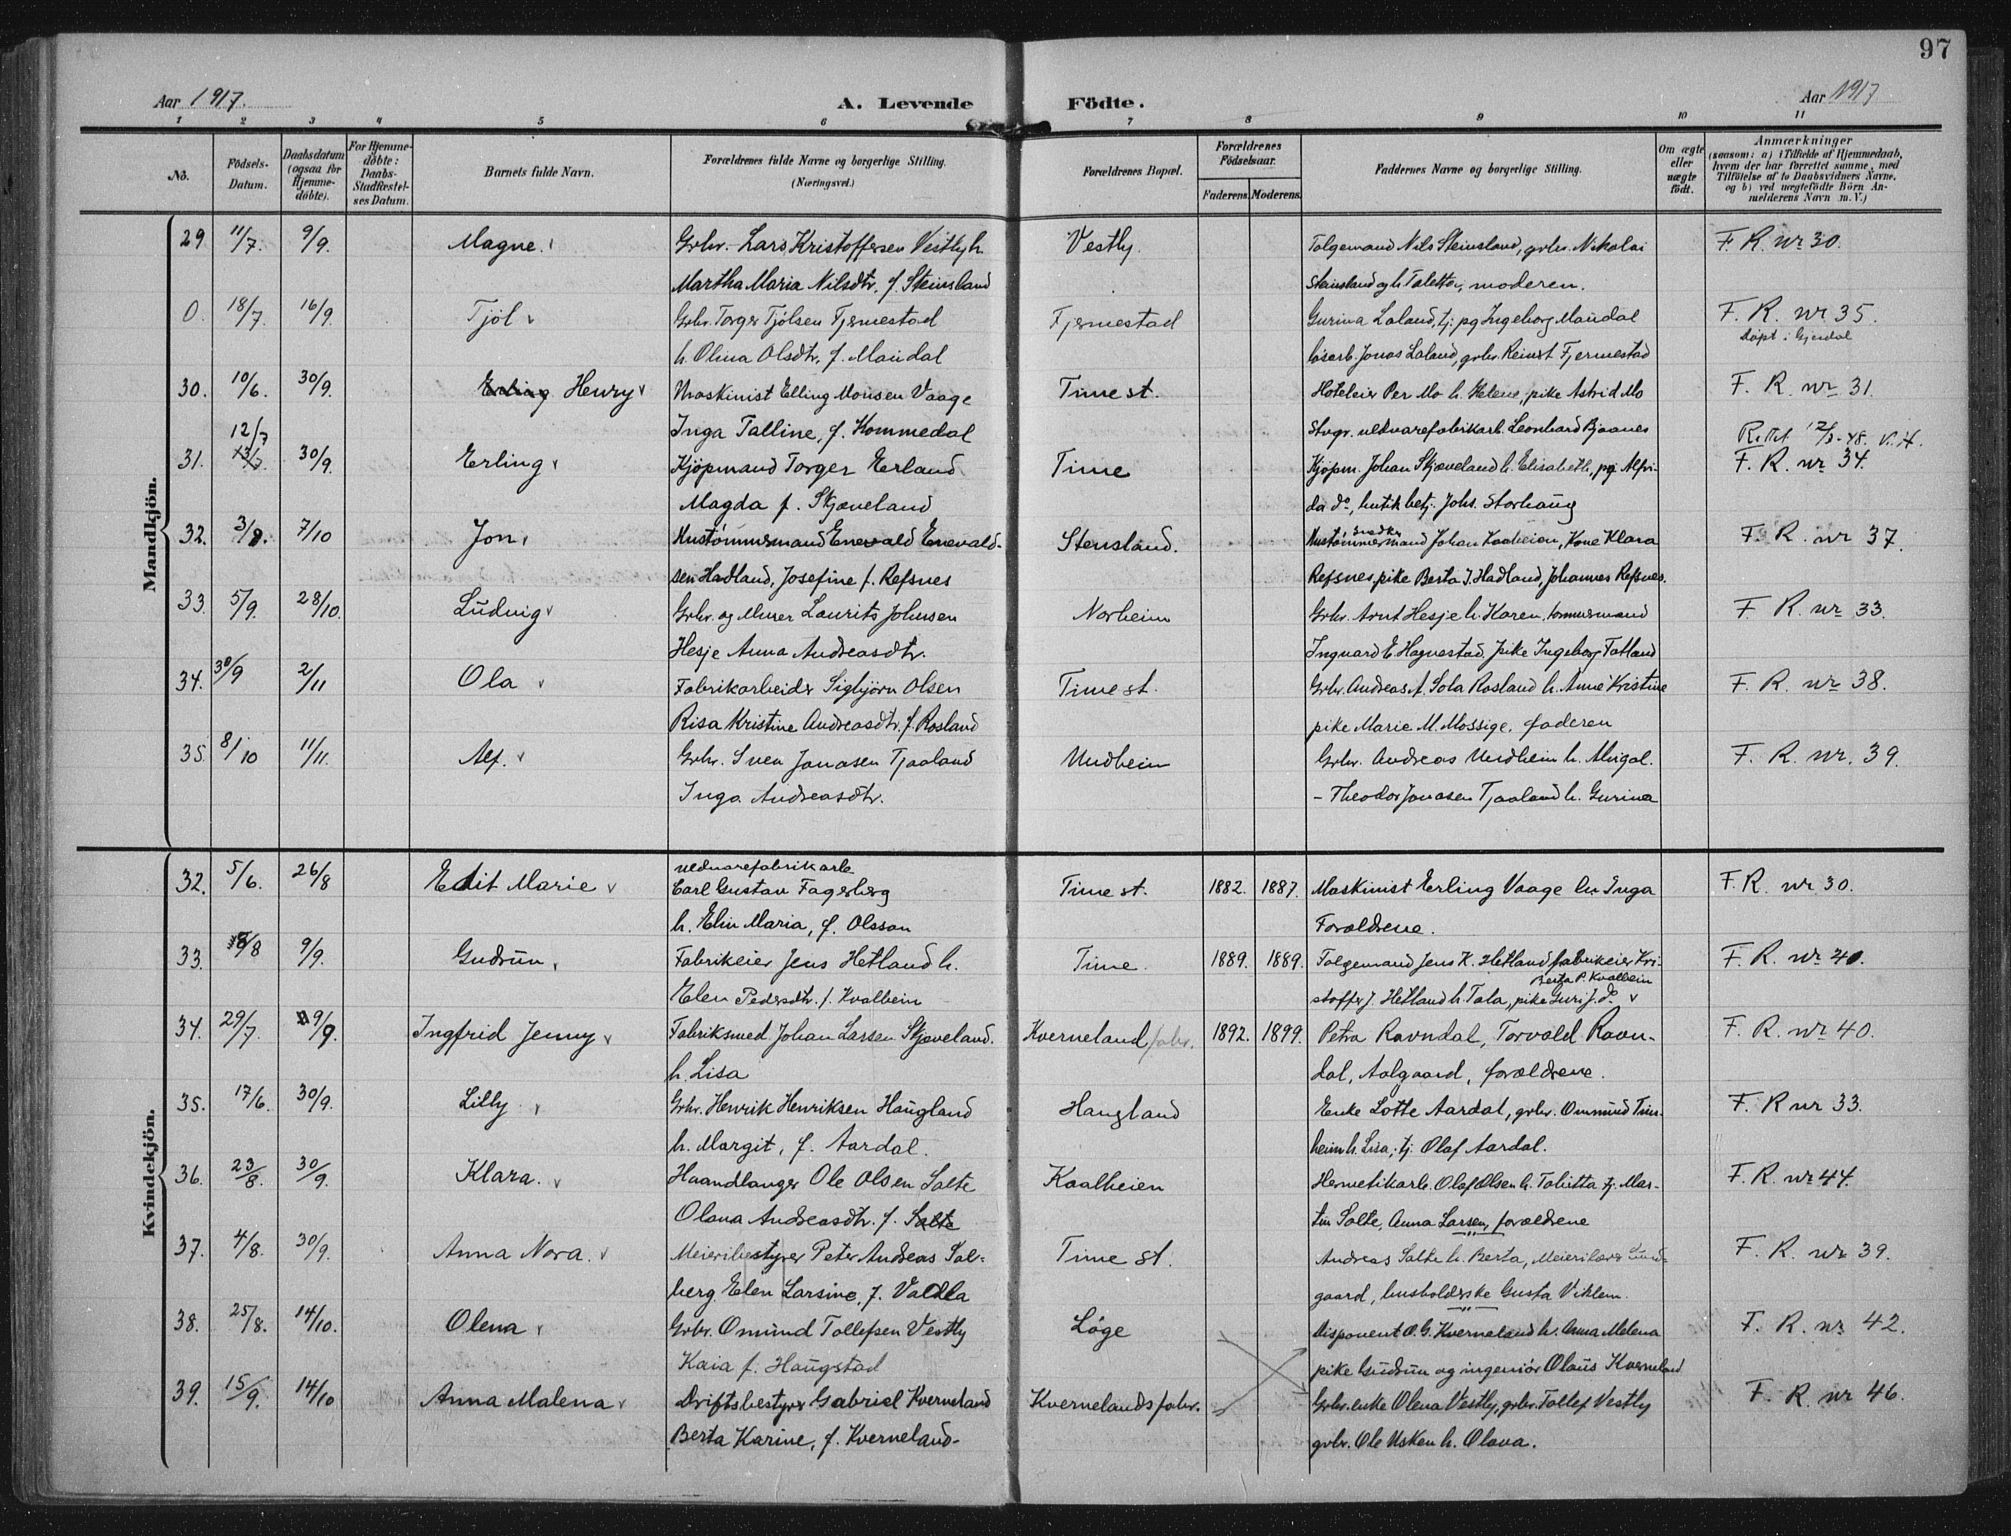 97
Aar 1917. A. Levende Födte. Aar 1917
1 2 3 4 5 6 7 8 9 10 11
No. Födsels-Datum. Daabsdatum (ogsaa for Hjemmedöbte). For Hjemmedöbte: Daabs-Stadfæstelses Datum. Barnets fulde Navn. Forældrenes fulde Navne og borgerlige Stilling. (Næringsvei.) Forældrenes Bopæl. Forældrenes Födselsaar. Faderens. Moderens. Faddernes Navne og borgerlige Stilling. Om ægte eller uægte födt. Anmærkninger (saasom: a) i Tilfælde af Hjemmedaab, hvem der har forrettet samme, med Tilföielse af to Daabsvidners Navne, og b) ved uægtefödte Börn Anmelderens Navn m. V.)
Mandkjön.
29 11/7. 9/9. Magne. Grbr. Lars Kristoffersen Vestly h. Vestly. Tolgemand Nils Steinsland, grbr. Nikolai F. R. nr 30.
Martha Maria Nilsdtr. f. Steinsland Steinsland og h. Taletta, moderen.
0. 18/7. 16/9. Tjöl Grbr. Torger Tjölsen Fjermestad Fjermestad Gurina Laland, tj: pg Ingeborg Maudal F. R. nr 35.
h. Olina Olsdtr, f. Maudal lösarb. Jonas Laland, grbr. Reinert Fjermestad döpt i Gjesdal
30. 10/6. 30/9. Erling Henry Maskinist Elling Monsen Vaage Time st. Hoteleier Per Mo h. Helene, pike Astrid Mo F. R. nr 31.
Inga Talline, f. Kommedal Stvgr. uldvarefabrikarb. Leonhard Bjaanes
31. 12/7 13/7 30/9. Erling Kjöpmand Torger Erland Time Kjöpm. Johan Skjæveland h. Elisabeth, pg. Alfri- Rettet 12/3-48. V.H. F. R. nr 34.
Magda f. Skjæveland da do, butikbetj. Johs. Storhaug
32. 3/9. 7/10 Jon Hustömmermand Enevald Enevald- Stensland. Hustömmermand snedker Johan Kaaheien, Kone Klara F. R. nr 37.
sen Hadland, Josefine f. Refsnes Refsnes, pike Berta J. Hadland, Johannes Refsnes.
33. 5/9. 28/10. Ludvig Grbr. og Murer Laurits Johnsen Norheim Grbr. Arnt Hesje h. Karen, tömmermand F. R. nr 33.
Hesje Anna Andreasdtr. Ingvard E. Hognestad, pike Ingeborg Totland
34. 30/9 2/11 Ola Fabrikarbeider Sigbjörn Olsen Time st. Grbr. Andreas A. Sola Rosland h. Anne Kristine F. R. nr 38.
Risa Kristine Andreasdtr. f. Rosland pike Marie M. Mossige, faderen
35. 8/10 11/11. Alf. Grbr. Sven Jonasen Tjaaland Undheim Grbr. Andreas Undheim h. Abigal. F. R. nr. 39.
Inga Andreasdtr. – Theodor Jonasen Tjaaland h. Gurina
Kvindekjön.
32. 5/6. 26/8 Edit Marie uldvarefabrikarb. Carl Gustav Fagerberg Time st. 1882. 1887. Maskinist Erling Vaage h. Inga F. R. nr 30.
h. Elin Maria, f. Olsson Forældrene.
33. 8/8 9/9. Gudrun Fabrikeier Jens Hetland h. Time. 1889. 1889. Tolgemand Jens K. Hetland fabrikeier Kri- F. R. nr 40.
Elen Pedersdtr. f. Kvalheim stoffer J. Hetland h. Tala, pike Guri J. do Berta P. Kvalheim
34. 29/7. 9/9. Ingfrid Jenny Fabriksmed Johan Larsen Skjæveland. Kverneland fabr. 1892. 1899. Petra Ravndal, Torvald Ravn- F. R. nr 40.
h. Lisa dal, Aalgaard, forældrene.
35. 17/6. 30/9. Lilly Grbr. Henrik Henriksen Haugland Haugland Enke Lotte Aardal, grbr. Ommund Tun- F. R nr 33.
h. Margit, f. Aardal. heim h. Lisa, tj. Olaf Aardal.
36. 23/8. 30/9. Klara. Haandlanger Ole Olsen Salte Kaalheien Hermetikarb. Olaf Olsen h. Tolietta tj. Mar- F. R. nr 44.
Olava Andreasdtr. f. Salte tin Salte, Anna Larsen, forældrene
37. 4/8. 30/9. Anna Nora. Meieribestyrer Peter Andreas Sol- Time st. Andreas Salte h. Berta, F. R. nr 39.
berg Elen Larsine, f. Vadla gaard, husholderske Gusta Viklem.
38. 25/8. 14/10. Olena Grbr. Omund Tollefsen Vestly Löge Disponent O. G. Kverneland h. Anna Malena F. R. nr 42.
Kaia f. Haugstad pike Gudrun og ingeniör Olaus Kverneland
39. 15/9. 14/10 Anna Malena Driftsbestyrer Gabriel Kverneland Kvernelands fabr. Grbr. enke Olena Vestly, grbr. Tollef Vestly F. R. nr 46.
Berta Karine, f. Kverneland- grbr. Ole Usken h. Olava.